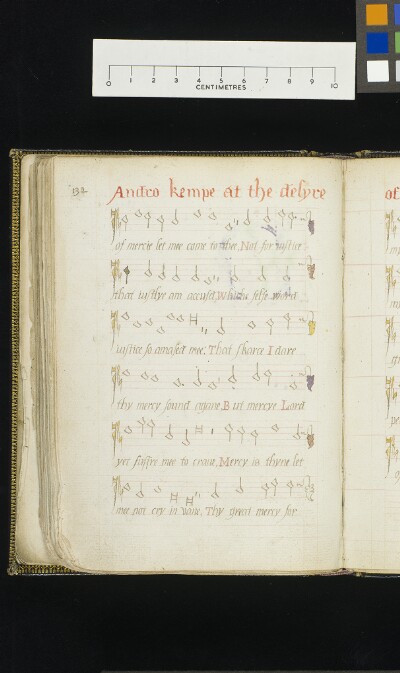 0 1 2 3 4 5 6 7 8 9 10
CENTIMETRES
132
Andro kempe at the desyre
of
of mercie let mee come to thee, Not for iustice
that iustlye am accused, Which selfe word
iustice so amased mee, That scarce I dare
thy mercy sound agane, But mercye Lord
yet suffre mee to craue, Mercy is thyne let
mee not cry in vaine, Thy great mercy for